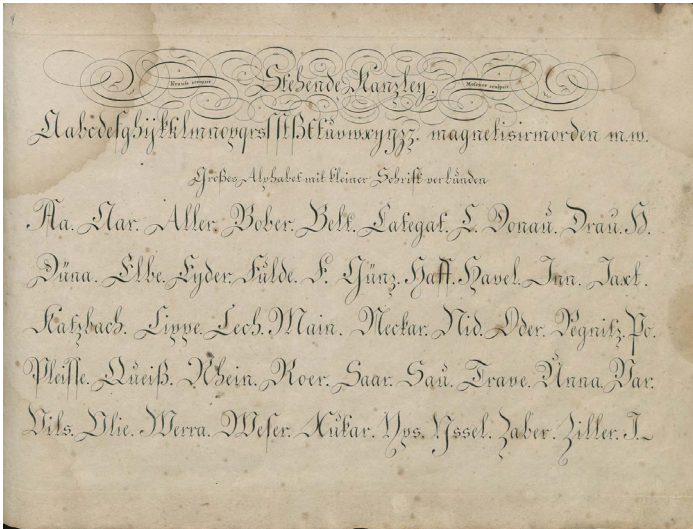 Stehende Kanzley.
Aabcdefghijkklmnopqrsſſſtßttuvwxyyzz. magnetisirmorden m.w.
Großes Alphabet mit kleiner Schrift verbunden
Aa. Aar. Aller. Bober. Belt. Categat. C. Donau. Drau. D.
Düna. Elbe. Eyder. Fulde. F. Günz. Haff. Havel. Inn. Jaxt.
Katzbach. Lippe. Lech. Main. Neckar. Nid. Oder. Pegnitz. Po.
Pleiſſe. Queiß. Rhein. Roer. Saar. Sau. Trave. Unna. Var.
Vils. Vlie. Werra. Weſer. Xukar. Yps. Yssel. Zaber. Ziller. I.